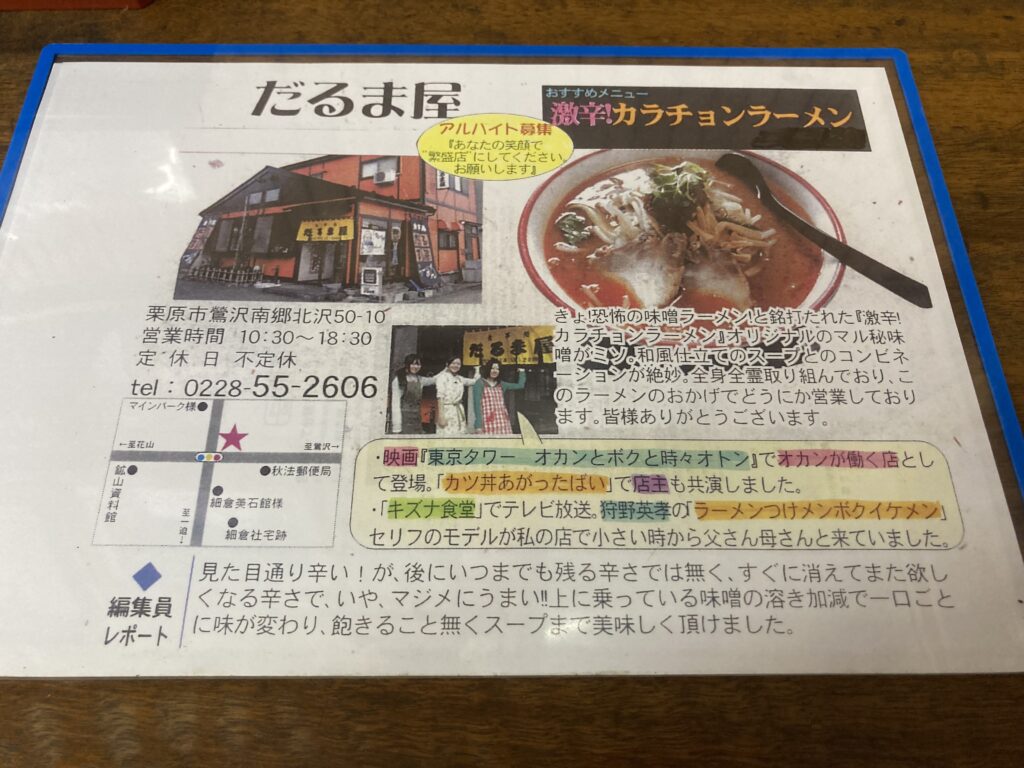 だるま屋
おすすめメニュー
激辛!カラチョンラーメン
アルバイト募集
『あなたの笑顔で
"繁盛店"にしてください。
お願いします』
だるま屋
栗原市鶯沢南郷北沢50-10
営業時間 10:30〜18:30
定休日 不定休
tel : 0228-55-2606
だるま屋
きょ!恐怖の味噌ラーメン!と銘打たれた『激辛!
カラチョンラーメン』オリジナルのマル秘味
噌がミソ。和風仕立てのスープとのコンビネ
ーションが絶妙。全身全霊取り組んでおり、こ
のラーメンのおかげでどうにか営業しており
ます。皆様ありがとうございます。
マインパーク様●
←至花山
至鶯沢→
鉱山資料館
●秋法郵便局
細倉美石館様
至一迫→
細倉社宅跡
・映画『東京タワー オカンとボクと時々オトン』でオカンが働く店とし
て登場。「カツ丼あがったばい」で店主も共演しました。
・「キズナ食堂」でテレビ放送。狩野英孝の「ラーメンつけメンボクイケメン」
セリフのモデルが私の店で小さい時から父さん母さんと来ていました。
◆
編集員
レポート
見た目通り辛い!が、後にいつまでも残る辛さでは無く、すぐに消えてまた欲し
くなる辛さで、いや、マジメにうまい!!上に乗っている味噌の溶き加減で一口ごと
に味が変わり、飽きること無くスープまで美味しく頂けました。